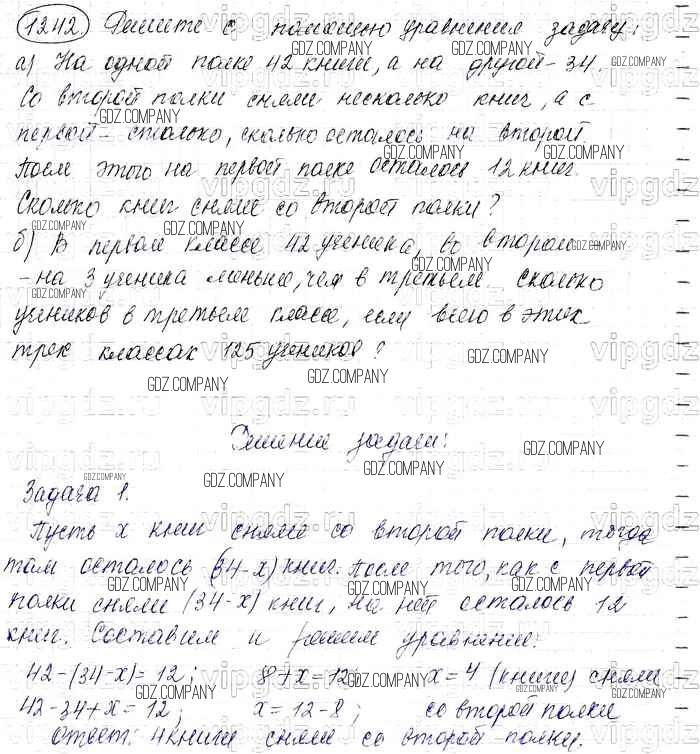 1242. Решите с помощью уравнения задачу:
а) На одной полке 42 книги, а на другой - 34.
Со второй полки сняли несколько книг, а с
первой - столько, сколько осталось на второй.
После этого на первой полке осталось 12 книг.
Сколько книг сняли со второй полки?
б) В первом классе 42 ученика, во втором
- на 3 ученика меньше, чем в третьем. Сколько
учеников в третьем классе, если всего в этих
трех классах 125 учеников?
Решение задачи:
Задача 1.
Пусть x книг сняли со второй полки, тогда
там осталось (34-x) книг. После того, как с первой
полки сняли (34-x) книг, на ней осталось 12
книг. Составим и решим уравнение:
42-(34-x)=12; 8+x=12; x=4 (книги) сняли
42-34+x=12; x=12-8; со второй полки
Ответ: 4 книги сняли со второй полки.
GDZ.COMPANY
vipgdz.ru